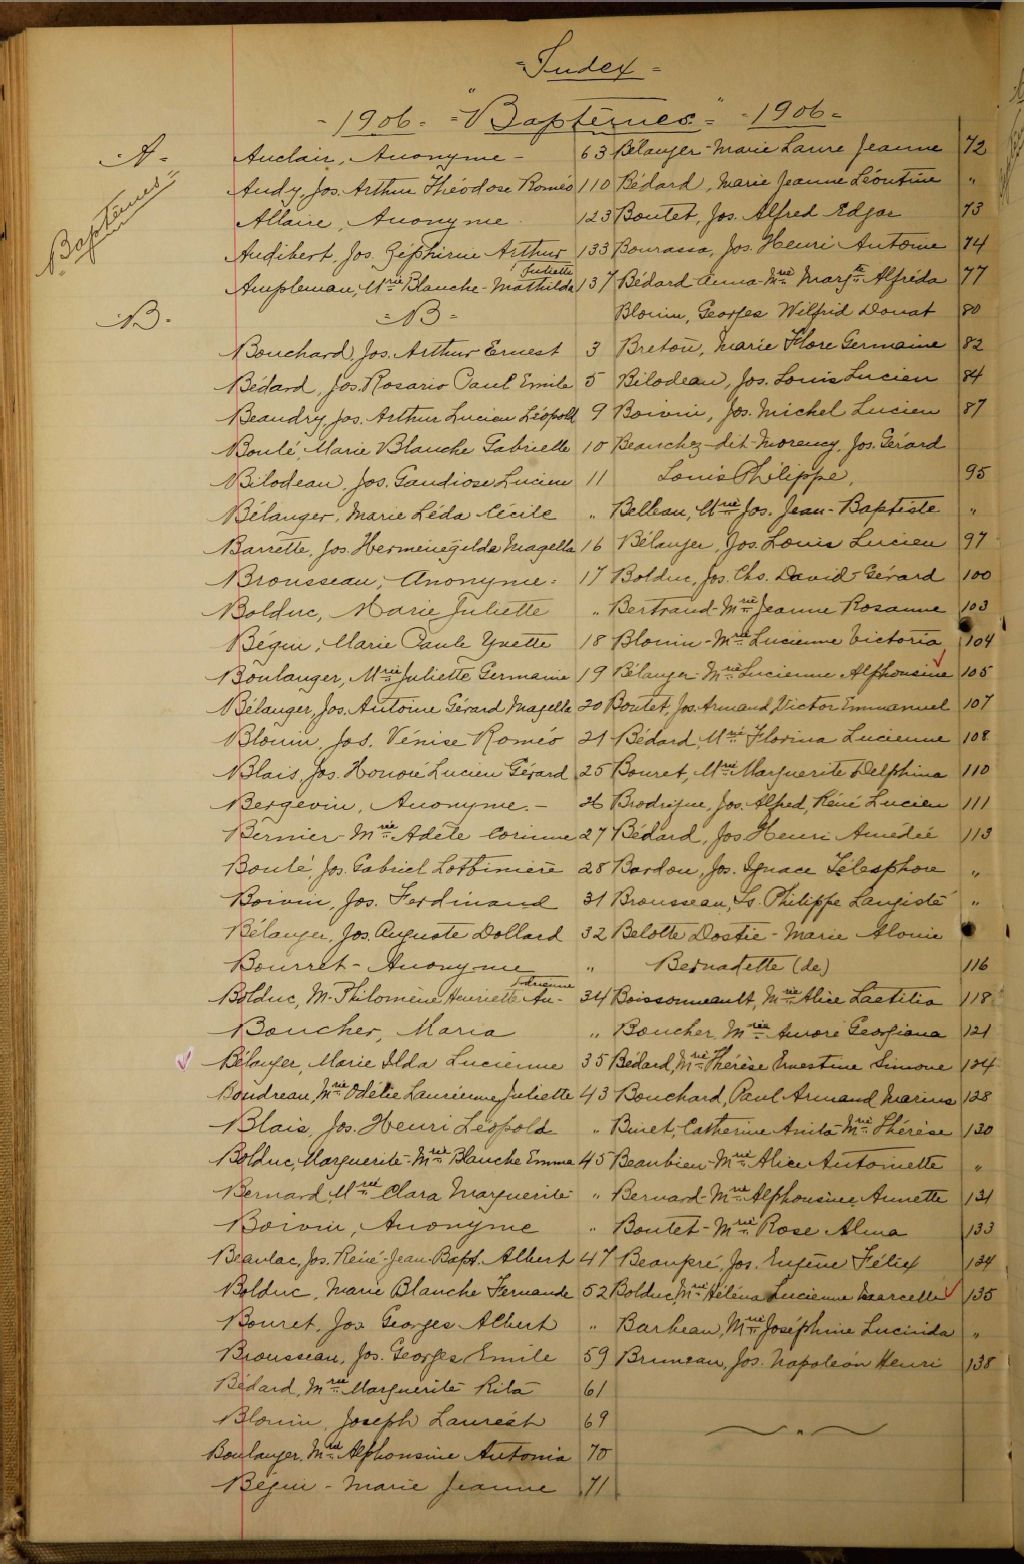 = Index =
- 1906 - = "Baptêmes" = - 1906 -
- A -
"Baptêmes"
Auclair, Anonyme - 63
Audy, Jos. Arthur Théodose Roméo 110
Allaire, Anonyme 123
Audibert, Jos. Zéphirin Arthur 133
Juliette
Ampleman, Mrie Blanche - Mathilda 137
- B -
- B -
Bouchard, Jos. Arthur Ernest 3
Bédard, Jos. Rosario Paul Emile 5
Beaudry, Jos. Arthur Lucien Léopold 9
Boulé, Marie Blanche Gabrielle 10
Bilodeau, Jos. Gaudiose Lucien 11
Bélanger, Marie Léda Cécile "
Barrette, Jos. Herménégilde Magella 16
Brousseau, Anonyme - 17
Bolduc, Marie Juliette "
Bégin, Marie Paule Yvette 18
Boulanger, Mrie Juliette Germaine 19
Bélanger, Jos. Antoine Gérard Magella 20
Blouin, Jos. Vénise Roméo 21
Blais, Jos. Honoré Lucien Gérard 25
Bergevin, Anonyme. - 26
Bernier - Mrie Adèle Corinne 27
Boulé, Jos. Gabriel Lotbinière 28
Boivin, Jos. Ferdinand 31
Bélanger, Jos. Auguste Dollard 32
Bourret - Anonyme "
Adrienne
Bolduc, M. Philomène Henriette An- 34
Boucher, Maria "
Bélanger, Marie Ilda Lucienne 35
Boudreau, Mrie Odélie Laurienne Juliette 43
Blais, Jos. Henri Léopold "
Bolduc, Marguerite - Mrie Blanche Emma 45
Bernard, Mrie Clara Marguerite "
Boivin, Anonyme "
Beaulac, Jos. Réné - Jean-Bapt. Albert 47
Bolduc, Marie Blanche Fernande 52
Bouret, Jos. Georges Albert "
Brousseau, Jos. Georges Emile 59
Bédard, Mrie Marguerite Rita 61
Blouin, Joseph Lauréat 69
Boulanger, Mrie Alphonsine Antonia 70
Bégin - Marie Jeanne 71
Bélanger - Marie Laure Jeanne 72
Bédard, Marie Jeanne Léontine "
Boutet, Jos. Alfred Edgar 73
Bourassa, Jos. Henri Antoine 74
Bédard - Anna - Mrie Margte Alfréda 77
Blouin, Georges Wilfrid Donat 80
Breton, Marie Flore Germaine 82
Bilodeau, Jos. Louis Lucien 84
Boivin, Jos. Michel Lucien 87
Beauchez - dit - Morency, Jos. Gérard
Louis Philippe, 95
Belleau, Mrie Jos. Jean-Baptiste "
Bélanger, Jos. Louis Lucien 97
Bolduc, Jos. Chs. David - Gérard 100
Bertrand - Mrie Jeanne Rosanne 103
Blouin - Mrie Lucienne Victoria 104
Bélanger - Mrie Lucienne Alphonsine 105
Boutet, Jos. Armand, Victor Emmanuel 107
Bédard, Mrie Florina Lucienne 108
Bouret, Mrie Marguerite Delphina 110
Brodrigue, Jos. Alfred, Réné Lucien 111
Bédard, Jos. Henri Amédée 113
Bardou, Jos. Ignace Télesphore "
Brousseau, Ls. Philippe "
Belotte Dostie - Marie Alouie
Bernadette (de) 116
Boissonneault, Mrie Alice Laetitia 118
Boucher, Mrie Aurore Georgiana 121
Bédard, Mrie Thérèse Ernestine Simone 124
Bouchard, Paul Armand Marius 128
Binet, Catherine Anita - Mrie Thérèse 130
Beaubien - Mrie Alice Antoinette "
Bernard - Mrie Alphonsine Annette 131
Boutet - Mrie Rose Alma 133
Beaupré, Jos. Eugène Félix 134
Bolduc, Mrie Héléna Lucienne Marcelle 135
Barbeau, Mrie Joséphine Lucinida "
Bruneau, Jos. Napoléon Henri 138